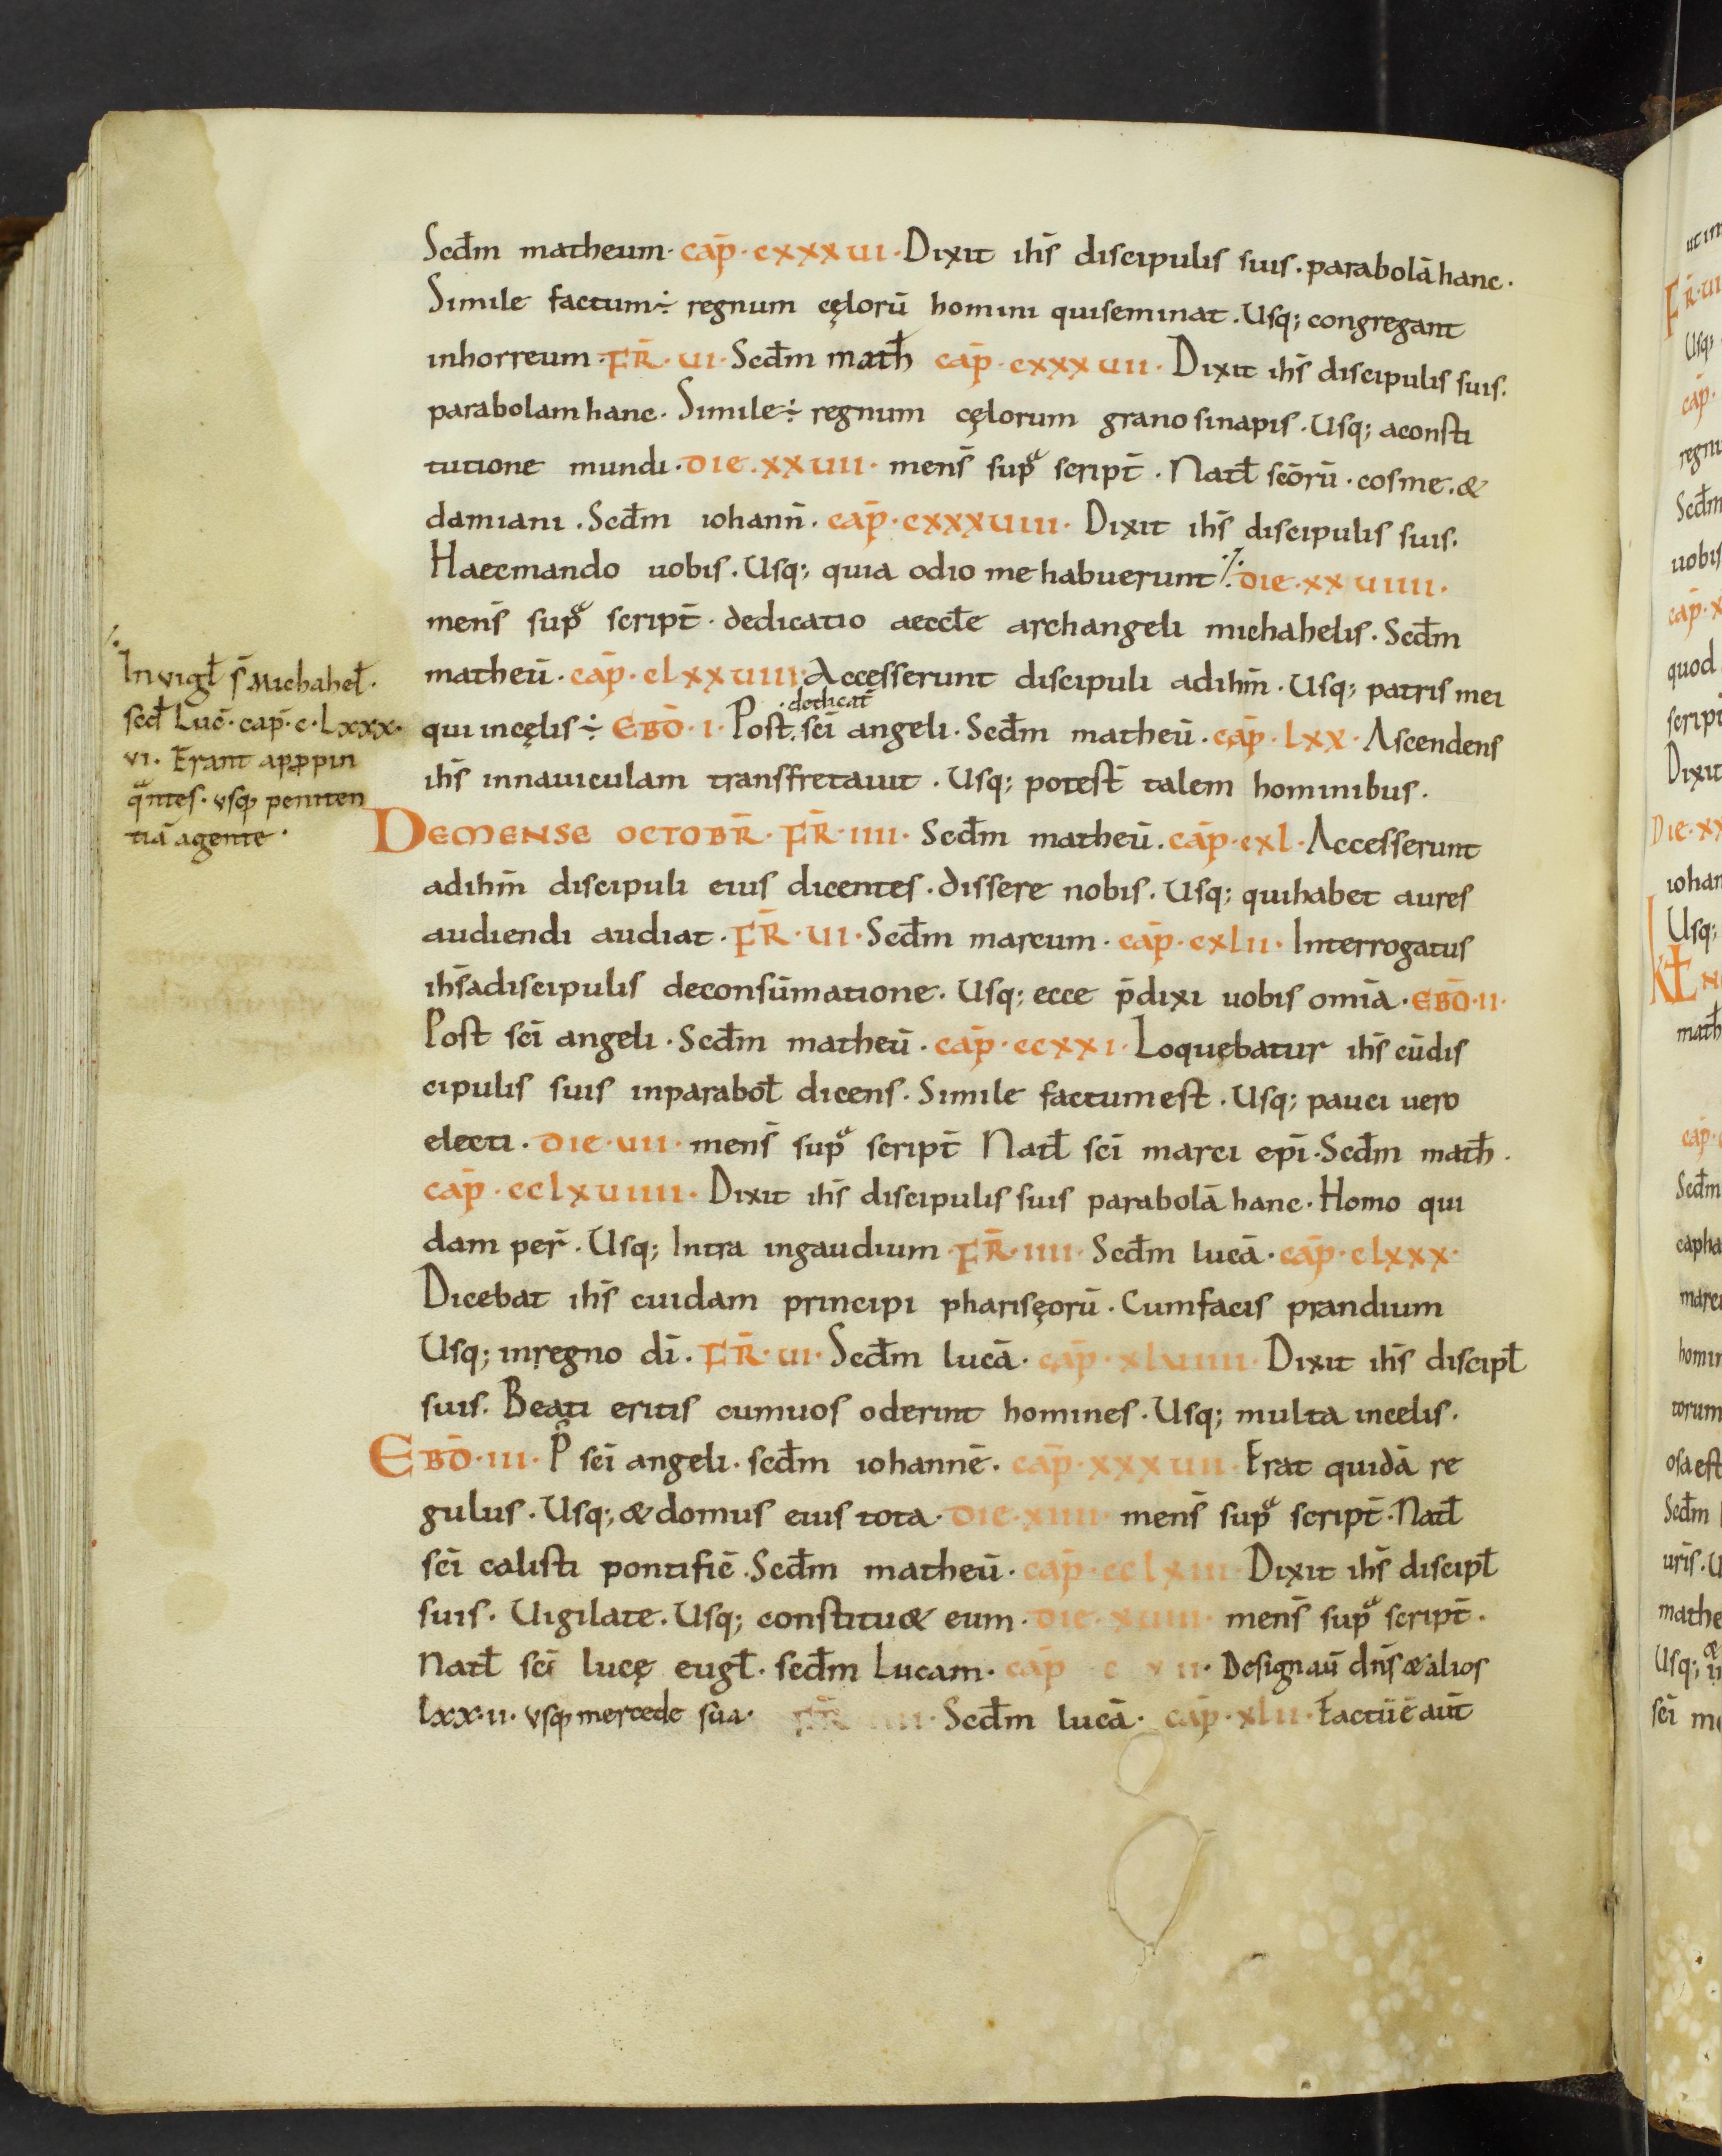 Scđm matheum · cap̄ · cxxxvi · Dixit ihs̄ discipulis suis · parabolā hanc ·
Simile factum ÷ regnum cęlorū homini quiseminat · Usq; congregant
inhorreum · FR̄ · vi · Scđm math̄ cap̄ · cxxxvii · Dixit ihs̄ discipulis suis ·
parabolam hanc · Simile ÷ regnum cęlorum grano sinapis · Usq; aconsti
tutione mundi · DIE · xxvii · mens̄ supͣ script̄ · Natł scōrū · cosme · &
damiani · Scđm iohann̄ · cap̄ · cxxxviiii · Dixit ihs̄ discipulis suis ·
Haecmando uobis · Usq; quia odio me habuerunt ⁒ DIE · xxviiii ·
mens̄ supͣ script̄ · dedicatio aeccłe archangeli michahelis · Scđm
matheū · cap̄ · clxxviiii · Accesserunt discipuli adihm̄ · Usq; patris mei
· dedicat̄
qui incęlis ÷ EBD̄ · I · Post · sci̅ angeli · Scđm matheū · cap̄ · lxx · Ascendens
ihs̄ innauiculam transfretauit · Usq; potest̄ talem hominibus ·
DEMENSE OCTOBR̄ · FR̄ · IIII · Scđm matheū · cap̄ · cxl · Accesserunt
adihm̄ discipuli eius dicentes · dissere nobis · Usq; quihabet aures
audiendi audiat · FR̄ · VI · Scđm marcum · cap̄ · cxlii · Interrogatus
ihs̄adiscipulis deconsūmatione · Usq; ecce p̄dixi uobis omīa · EBD̄ · II ·
Post sci̅ angeli · Scđm matheū · cap̄ · ccxxi · Loquębatur ihs̄ cūdis
cipulis suis inparaboł dicens · Simile factumest · Usq; pauci uero
electi · DIE · VII · mens̄ supͣ script̄ Natł sci̅ marci epi̅ · Scđm math̄ ·
cap̄ · cclxviiii · Dixit ihs̄ discipulis suis parabolā hanc · Homo qui
dam per̄ · Usq; Intra ingaudium · FR̄ · IIII · Scđm lucā · cap̄ · clxxx ·
Dicebat ihs̄ cuidam principi pharisęorū · Cumfacis prandium
Usq; inregno di̅ · FR̄ · VI · Scđm lucā · cap̄ · xlviiii · Dixit ihs̄ discipł
suis · Beati eritis cumuos oderint homines · Usq; multa incelis ·
EBD̄ · III · P̊ sci̅ angeli · scđm iohannē · cap̄ · xxxvii · Erat quidā re
gulus · Usq; & domus eius tota · DIE · xiiii · mens̄ supͣ script̄ · Natł
sci̅ calisti pontific̄ · Scđm matheū · cap̄ · cclxiii · Dixit ihs̄ discipł
suis · Uigilate · Usq; constitu& eum · DIE · xviiii · mens̄ supͣ script̄ ·
Natł sci̅ lucę eugł · scđm Lucam · cap̄ · Designaū dn̄s & alios
lxx · ii · vsq mercede sua · FR̄ · Scđm lucā · cap̄ · xlii · Factūē aut̄
⁒ In vigł s̄ Michaheł ·
scđ Luc̄ · cap̄ · c · Lxxx ·
vi · Erant appropin
qͣntes · vsq peniten
tiā agente ·